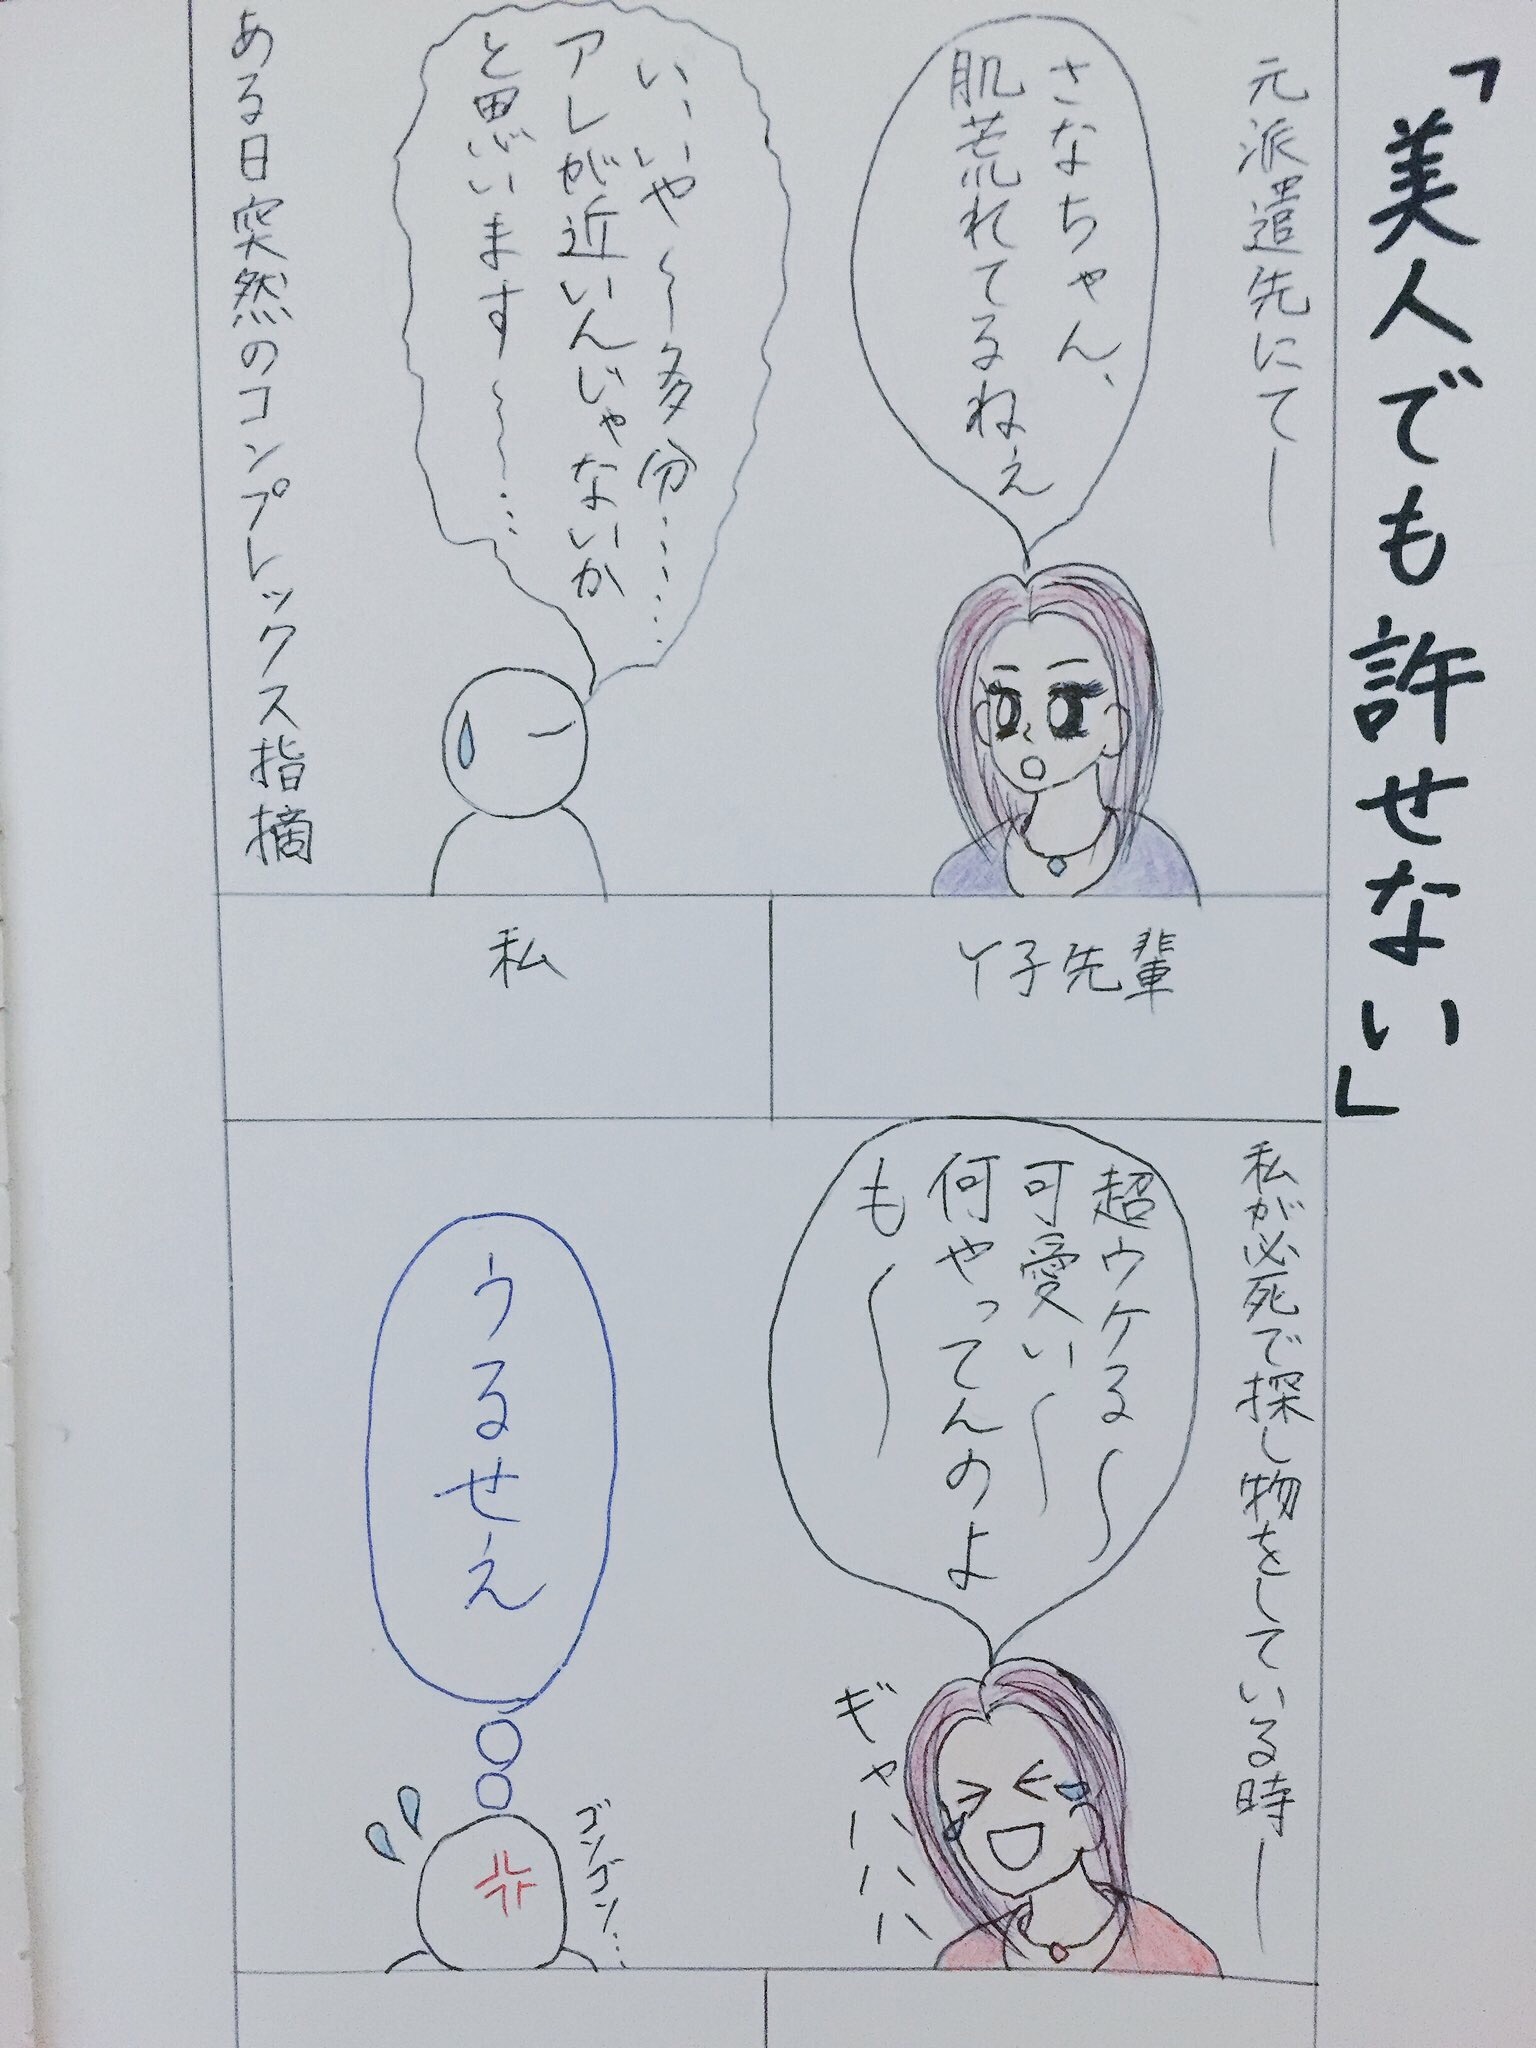 「美人でも許せない」
元派遣先にて―
さなちゃん、
肌荒れてるねぇ
いいや～多分……
アレが近いんじゃないか
と思います～～…
ある日突然のコンプレックス指摘
Y子先輩
私
私が必死で探し物をしている時―
超ウケる～
可愛い～
何やってんのよ
も～
ギャハハハハ
うるせえ
ゴソゴソ…